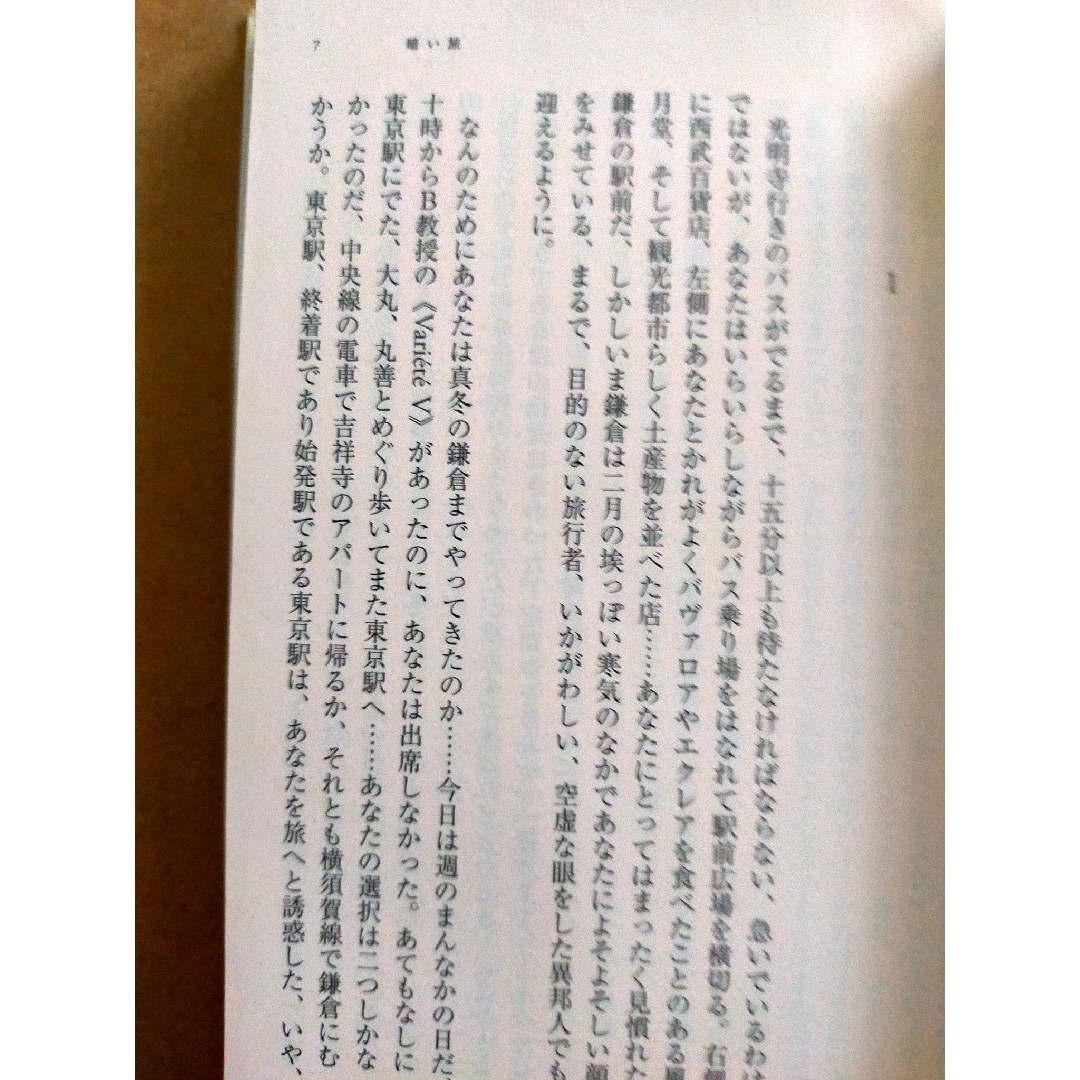 7
暗い旅
1
光明寺行きのバスがでるまで、十五分以上も待たなければならない、急いでいるわけ
ではないが、あなたはいらいらしながらバス乗り場をはなれて駅前広場を横切る。右側
に西武百貨店、左側にあなたとかれがよくバヴァロアやエクレアを食べたことのある風
月堂、そして観光都市らしく土産物を並べた店……あなたにとってはまったく見慣れた
鎌倉の駅前だ、しかしいま鎌倉は二月の埃っぽい寒気のなかであなたによそよそしい顔
をみせている、まるで、目的のない旅行者、いかがわしい、空虚な眼をした異邦人でも
迎えるように。
なんのためにあなたは真冬の鎌倉までやってきたのか……今日は週のまんなかの日だ、
十時からB教授の《Variété V》があったのに、あなたは出席しなかった。あてもなしに
東京駅にでた、大丸、丸善とめぐり歩いてまた東京駅へ……あなたの選択は二つしかな
かったのだ、中央線の電車で吉祥寺のアパートに帰るか、それとも横須賀線で鎌倉にむ
かうか。東京駅、終着駅であり始発駅である東京駅は、あなたを旅へと誘惑した、いや、